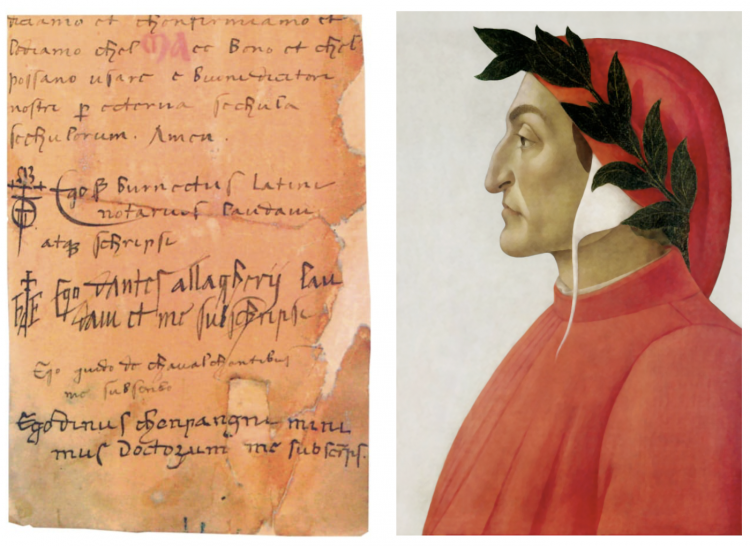 ticiamo et chonfirmiamo et
lediamo chel MA ec Beno et chel
possano usare e buinedicitori
nostri p ecterna sechula
sechulorum. Amen.
Ego S Burnectus Latini
notarius laudavi
atqz schripsi
Ego dantes allagherij lau
davi et me subschripsi
Ego guido de chavalchantibus
me subscribo
Ego dinus chonpangni mini
mus Doctorum me subscrips.